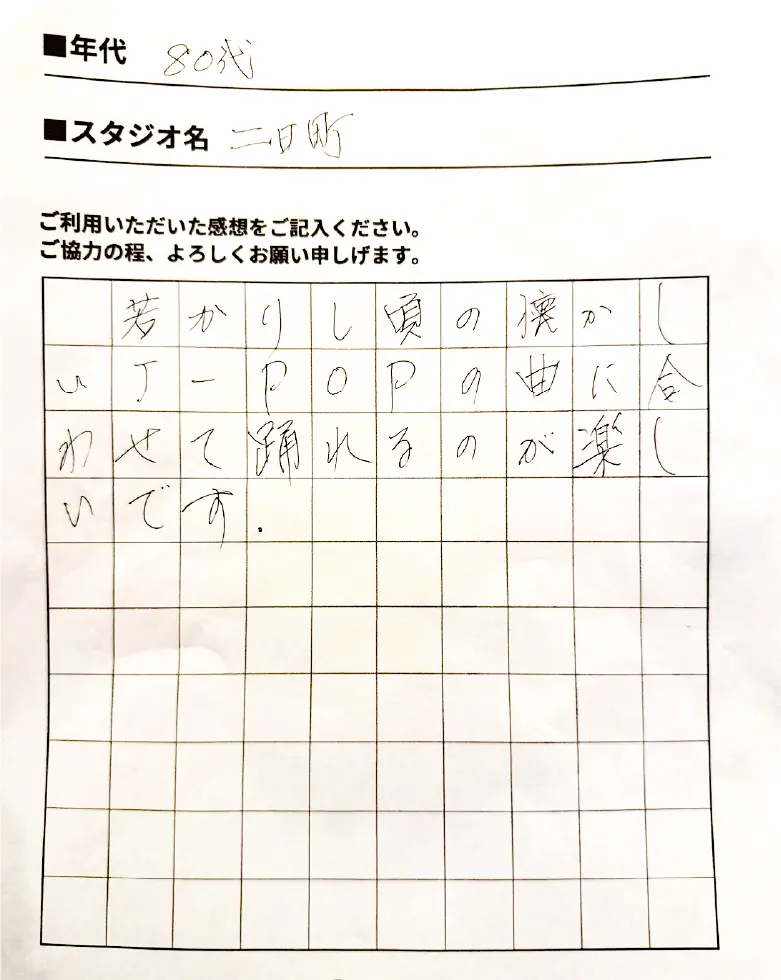 ■年代 80代
■スタジオ名 二日町
ご利用いただいた感想をご記入ください。
ご協力の程、よろしくお願い申しげます。
若かりし頃の懐かし
いJ-POPの曲に合
わせて踊れるのが楽し
いです.